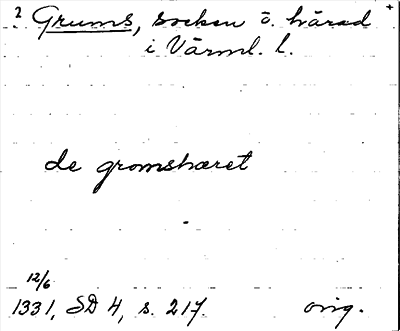 2 Grums, socken o. härad +
i Värml. l.
de gromshæret
12/6
1331, SD 4, s. 217. orig.